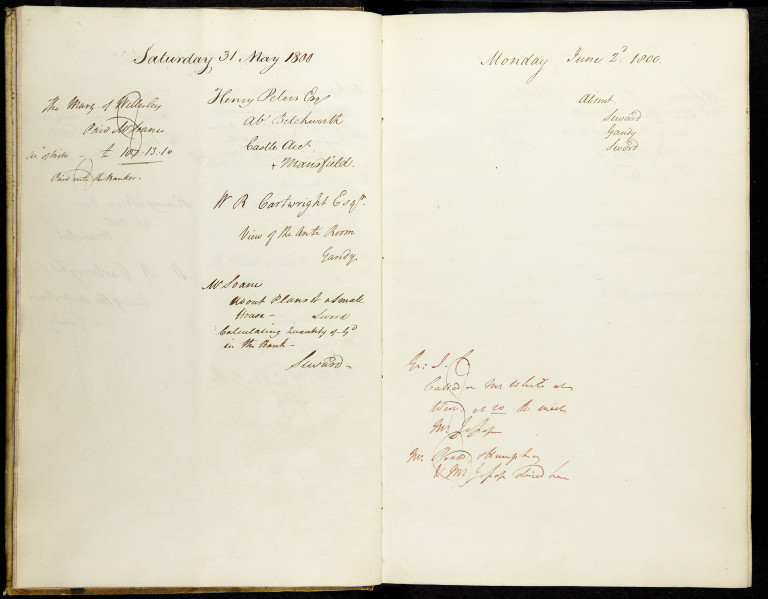 Saturday 31 May 1800
The Marq. of Wellesley
Paid Mr Soane
£ 107.13.10
Paid into the Banker.
Henry Peters Esq
Abt Betchworth
Castle Acct
+ Mansfield.
W R Cartwright Esqr.
View of the Anti Room
Gandy.
Mr Soane
About Plans for a Small
House — Sword
Calculating Quantity of
in the Bank —
Seward —
Monday June 2d. 1800.
Absent.
Seward
Gandy
Sword
J. S.
Called on Mr White at
at 20 the
Mr Jessop
Mr. Humphry
& Mr Jessop dined here